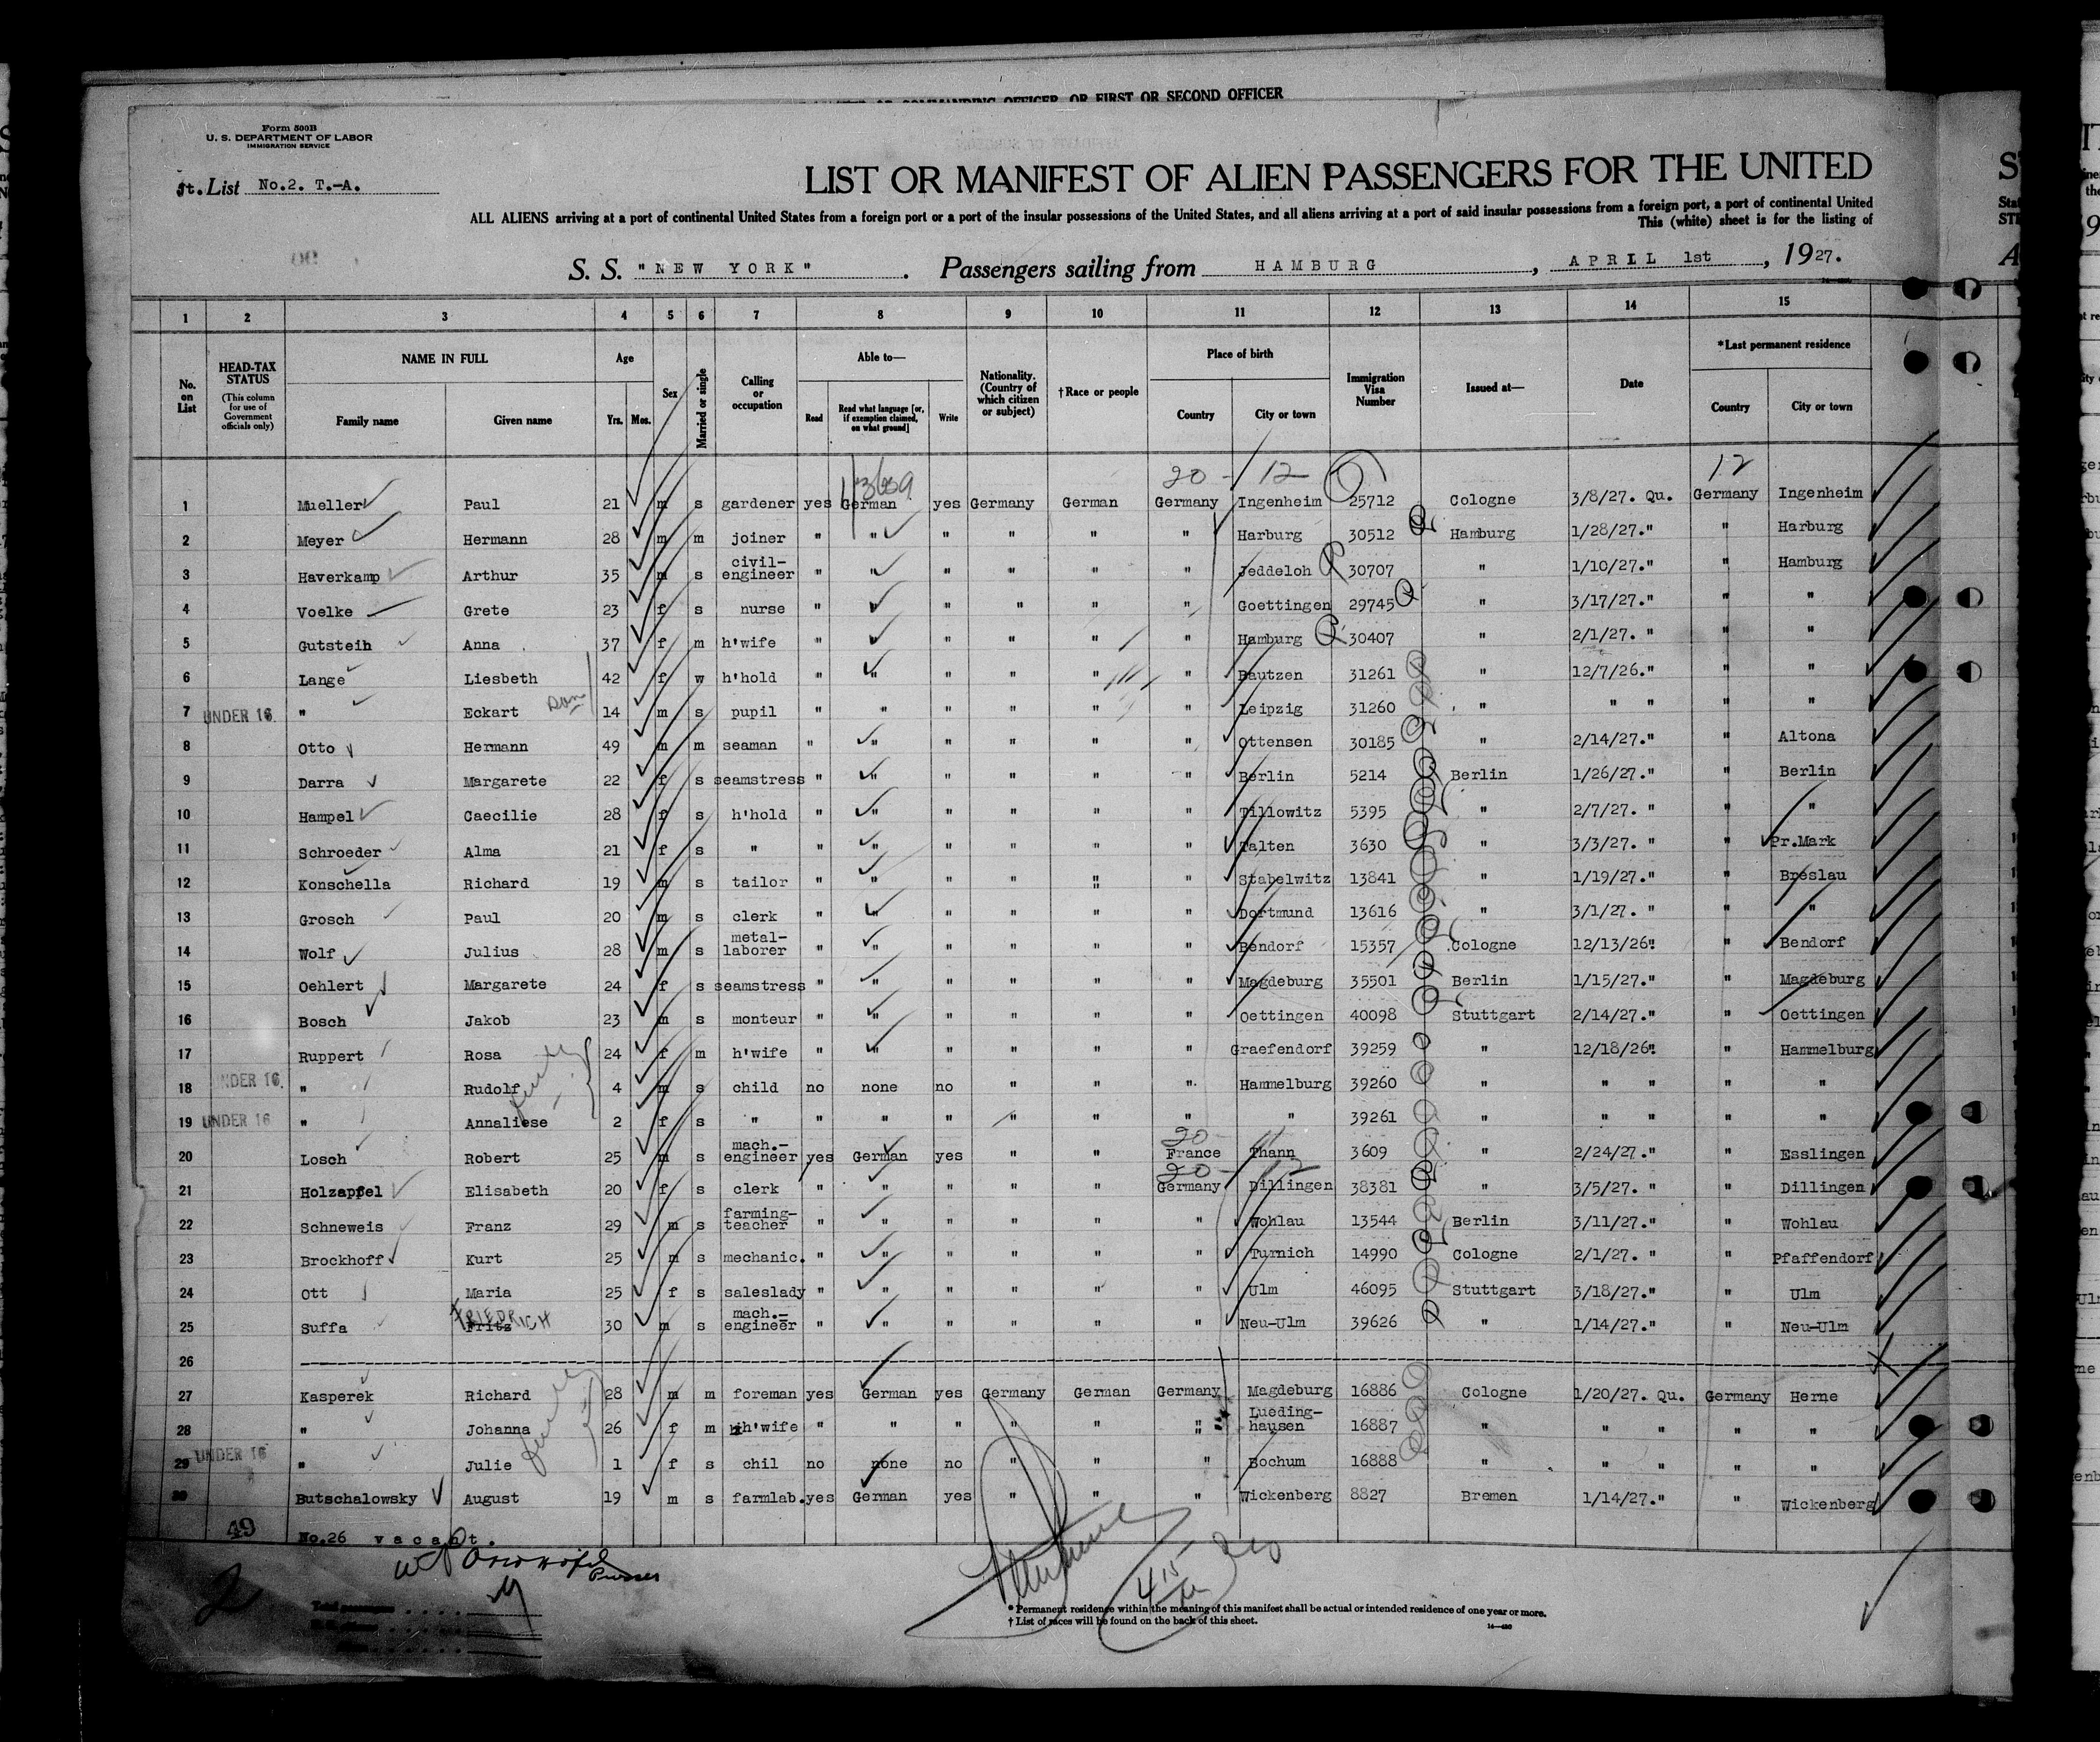 COMMANDING OFFICER, OR FIRST OR SECOND OFFICER
Form 500B
U. S. DEPARTMENT OF LABOR
IMMIGRATION SERVICE
St. List No.2. T.-A.
LIST OR MANIFEST OF ALIEN PASSENGERS FOR THE UNITED
ALL ALIENS arriving at a port of continental United States from a foreign port or a port of the insular possessions of the United States, and all aliens arriving at a port of said insular possessions from a foreign port, a port of continental United
This (white) sheet is for the listing of
S. S. "NEW YORK". Passengers sailing from HAMBURG, APRIL 1st, 1927.
1 2 3 4 5 6 7 8 9 10 11 12 13 14 15
No. on List
HEAD-TAX STATUS
(This column for use of Government officials only)
NAME IN FULL
Family name Given name
Age
Yrs. Mos.
Sex
Married or single
Calling or occupation
Able to—
Read Read what language [or, if exemption claimed, on what ground] Write
Nationality. (Country of which citizen or subject)
†Race or people
Place of birth
Country City or town
Immigration Visa Number
Issued at—
Date
*Last permanent residence
Country City or town
20 - 12 12
1 Mueller Paul 21 m s gardener yes German yes Germany German Germany Ingenheim 25712 Cologne 3/8/27. Qu. Germany Ingenheim
2 Meyer Hermann 28 m m joiner " " " " " " Harburg 30512 Hamburg 1/28/27." " Harburg
3 Haverkamp Arthur 35 m s civil-engineer " " " " " " Jeddeloh 30707 " 1/10/27." " Hamburg
4 Voelke Grete 23 f s nurse " " " " " " Goettingen 29745 " 3/17/27." " "
5 Gutstein Anna 37 f m h'wife " " " " " " Hamburg 30407 " 2/1/27. " " "
6 Lange Liesbeth 42 f w h'hold " " " " " " Bautzen 31261 " 12/7/26." " "
7 UNDER 16. " Eckart son 14 m s pupil " " " " " " Leipzig 31260 " " " " "
8 Otto Hermann 49 m m seaman " " " " " " Ottensen 30185 " 2/14/27." " Altona
9 Darra Margarete 22 f s seamstress " " " " " " Berlin 5214 Berlin 1/26/27." " Berlin
10 Hampel Caecilie 28 f s h'hold " " " " " " Tillowitz 5395 " 2/7/27. " " "
11 Schroeder Alma 21 f s " " " " " " " Talten 3630 " 3/3/27. " " Pr.Mark
12 Konschella Richard 19 m s tailor " " " " " " Stabelwitz 13841 " 1/19/27." " Breslau
13 Grosch Paul 20 m s clerk " " " " " " Dortmund 13616 " 3/1/27. " " "
14 Wolf Julius 28 m s metal-laborer " " " " " " Bendorf 15357 Cologne 12/13/26" " Bendorf
15 Oehlert Margarete 24 f s seamstress " " " " " " Magdeburg 35501 Berlin 1/15/27." " Magdeburg
16 Bosch Jakob 23 m s monteur " " " " " " Oettingen 40098 Stuttgart 2/14/27." " Oettingen
17 Ruppert Rosa 24 f m h'wife " " " " " " Graefendorf 39259 " 12/18/26" " Hammelburg
18 UNDER 16. " Rudolf family 4 m s child no none no " " " Hammelburg 39260 " " " " "
19 UNDER 16 " Annaliese 2 f s " " " " " " " " 39261 " " " " "
20 -
20 Losch Robert 25 m s mach.-engineer yes German yes " " France Thann 3609 " 2/24/27." " Esslingen
20 - 12
21 Holzapfel Elisabeth 20 f s clerk " " " " " Germany Dillingen 38381 " 3/5/27. " " Dillingen
22 Schneweis Franz 29 m s farming-teacher " " " " " " Wohlau 13544 Berlin 3/11/27." " Wohlau
23 Brockhoff Kurt 25 m s mechanic. " " " " " " Turnich 14990 Cologne 2/1/27. " " Pfaffendorf
24 Ott Maria 25 f s saleslady " " " " " " Ulm 46095 Stuttgart 3/18/27." " Ulm
25 Suffa Fritz FRIEDRICH 30 m s mach.-engineer " " " " " " Neu-Ulm 39626 " 1/14/27." " Neu-Ulm
26
27 Kasperek Richard 28 m m foreman yes German yes Germany German Germany Magdeburg 16886 Cologne 1/20/27. Qu. Germany Herne
28 " Johanna family 26 f m h'wife " " " " " " Lueding-hausen 16887 " " " " "
29 UNDER 16 " Julie 1 f s chil no none no " " " Bochum 16888 " " " " "
30 Butschalowsky August 19 m s farmlab. yes German yes " " " Wickenberg 8827 Bremen 1/14/27." " Wickenberg
49
No.26 vacant.
2
Total passengers
* Permanent residence within the meaning of this manifest shall be actual or intended residence of one year or more.
† List of races will be found on the back of this sheet.